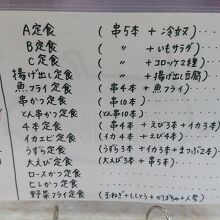 A定食 (串5本 + 冷奴 )
B定食 ( 〃 + いもサラダ )
C定食 ( 〃 + コロッケ2種 )
揚げ出し定食 ( 〃 + 揚げ出し豆腐 )
魚フライ定食 (串4本 + 魚フライ)
串かつ定食 (串10本)
とん串かつ定食 (串10本)
4本定食 (イカ4本 + えび4本)
イカエビ定食 (イカ3本 + えび3本
うずら定食 (うずら3本 + イカ3本 +
大えび定食 (大えび3本 + 串5本)
ロースかつ定食
ヒレかつ定食
野菜フライ定食 (玉ねぎ+ししとう+かぼちゃ+人参)